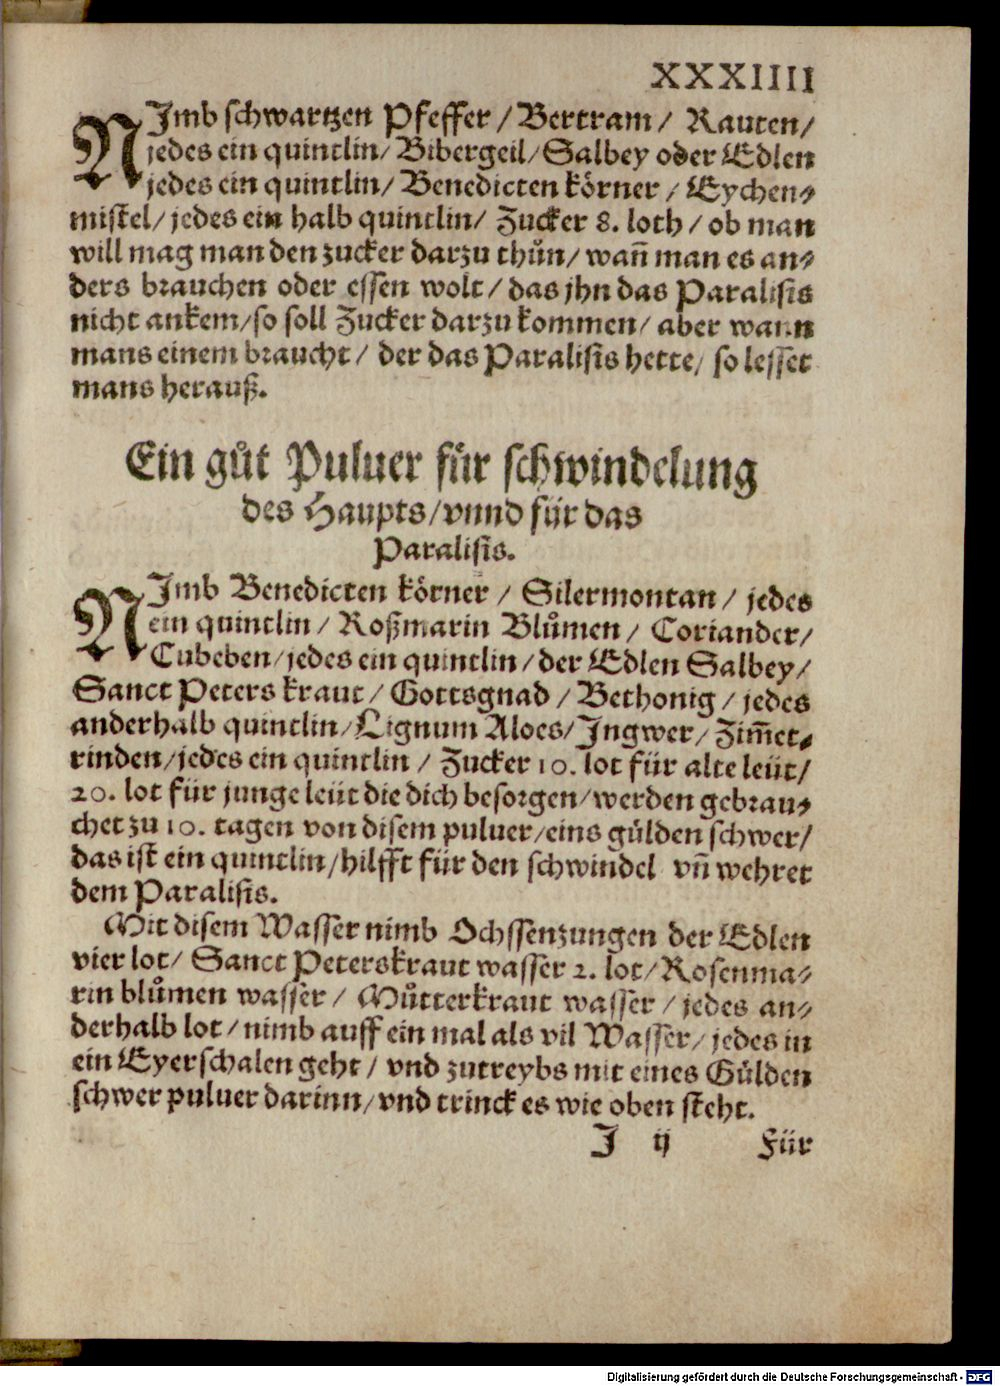 XXXIIII
NImb schwartzen Pfeffer / Bertram / Rauten /
jedes ein quintlin / Bibergeil / Salbey oder Edlen
jedes ein quintlin / Benedicten körner / Eychen⸗
mistel / jedes ein halb quintlin / Zucker 8. loth / ob man
will mag man den zucker darzu thůn / wañ man es an⸗
ders brauchen oder essen wolt / das jhn das Paralisis
nicht ankem / so soll Zucker darzu kommen / aber wann
mans einem braucht / der das Paralisis hette / so lesset
mans herauß.
Ein gůt Puluer für schwindelung
des Haupts / vnnd für das
Paralisis.
NImb Benedicten körner / Silermontan / jedes
ein quintlin / Roßmarin Blůmen / Coriander /
Cubeben / jedes ein quintlin / der Edlen Salbey /
Sanct Peters kraut / Gottsgnad / Bethonig / jedes
anderhalb quintlin / Lignum Aloes / Jngwer / Zim̃et⸗
rinden / jedes ein quintlin / Zucker 10. lot für alte leüt /
20. lot für junge leüt die dich besorgen / werden gebrau⸗
chet zu 10. tagen von disem puluer / eins gülden schwer /
das ist ein quintlin / hilfft für den schwindel vñ wehret
dem Paralisis.
Mit disem Wasser nimb Ochssenzungen der Edlen
vier lot / Sanct Peterskraut wasser 2. lot / Rosenma⸗
rin blůmen wasser / Můtterkraut wasser / jedes an⸗
derhalb lot / nimb auff ein mal als vil Wasser / jedes in
ein Eyerschalen geht / vnd zutreybs mit eines Gülden
schwer puluer darinn / vnd trinck es wie oben steht.
J ij Für
Digitalisierung gefördert durch die Deutsche Forschungsgemeinschaft - DFG